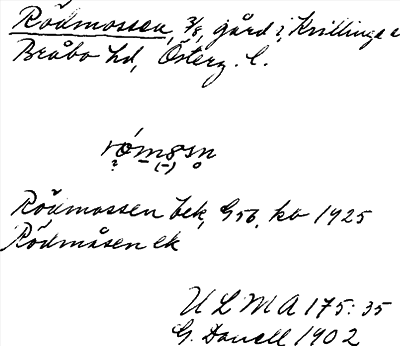 Rödmossen, 3/8, gård i, Kvillinge s
Bråbo hd, Österg. l.
römosn
Rödmossen bek, G 56, kb 1925
Rödmåsen ek
ULMA 175:35
G. Danell 1902